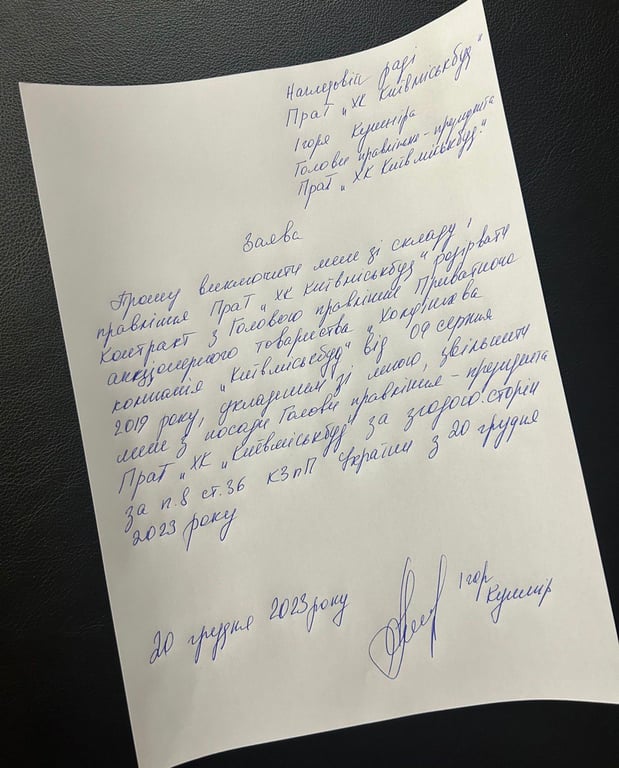 Наглядовій раді
ПраТ „ХК Київміськбуд"
Ігоря Кушніра
Голови правління-президента
ПраТ „ХК Київміськбуд."
Заява
Прошу виключити мене зі складу
правління ПраТ „ХК Київміськбуд" розірвати
контракт з Головою правління Приватного
акціонерного товариства „Холдингова
компанія „Київміськбуд" від 09 серпня
2019 року, укладеним зі мною, звільнити
мене з посади Голови правління-президента
ПраТ „ХК „Київміськбуд" за згодою сторін
за п.8 ст.36 КЗпП України з 20 грудня
2023 року
20 грудня 2023 року
Ігор
Кушнір